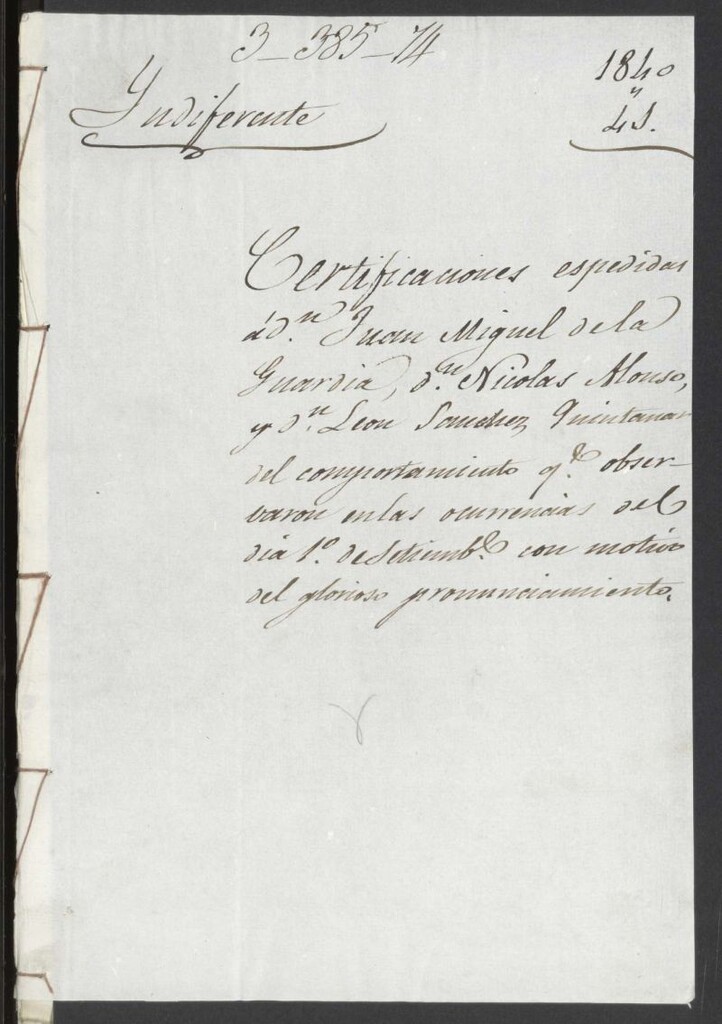 3-385-74
Yndiferente
1840
y
41.
Certificaciones espedidas
á d.n Juan Miguel de la
Guardia, d.n Nicolas Alonso,
y d.n Leon Sanchez Quintanar
del comportamiento q.e obser-
varon en las ocurrencias del
dia 1.o de Setiemb.e con motivo
del glorioso pronunciamiento.